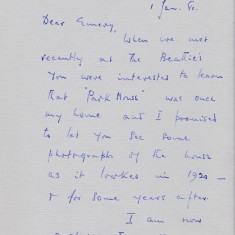 1 Jan. 80.
Dear Emery,
When we met
recently at the Beatties
you were interested to learn
that "Park House" was once
my home and I promised
to let you see some
photographs of the house
as it looked in 1920 -
& for some years after.
I am now